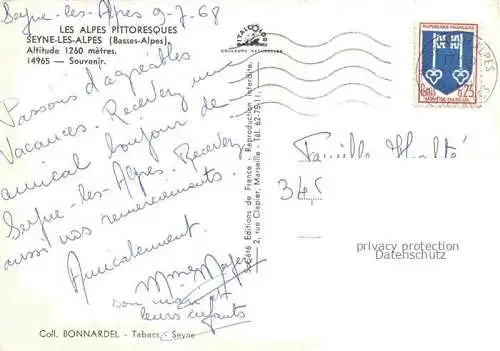 Seyne-les-Alpes 9-7-68
LES ALPES PITTORESQUES
SEYNE-LES-ALPES (Basses-Alpes)
Altitude 1260 mètres.
14965 — Souvenir.
Passons d'agréables
vacances. Recevez une
amical bonjour de
Seyne-les-Alpes. Recevez
aussi nos remerciements.
Amicalement.
Mme
son mari et
leurs enfants
Coll. BONNARDEL - Tabacs - Seyne
COULEURS NATURELLES
Editions de France - Reproduction interdite.
2, rue Clapier, Marseille - Tél. 62-75-17
REPUBLIQUE FRANÇAISE
0,25
Famille
34,
privacy protection
Datenschutz